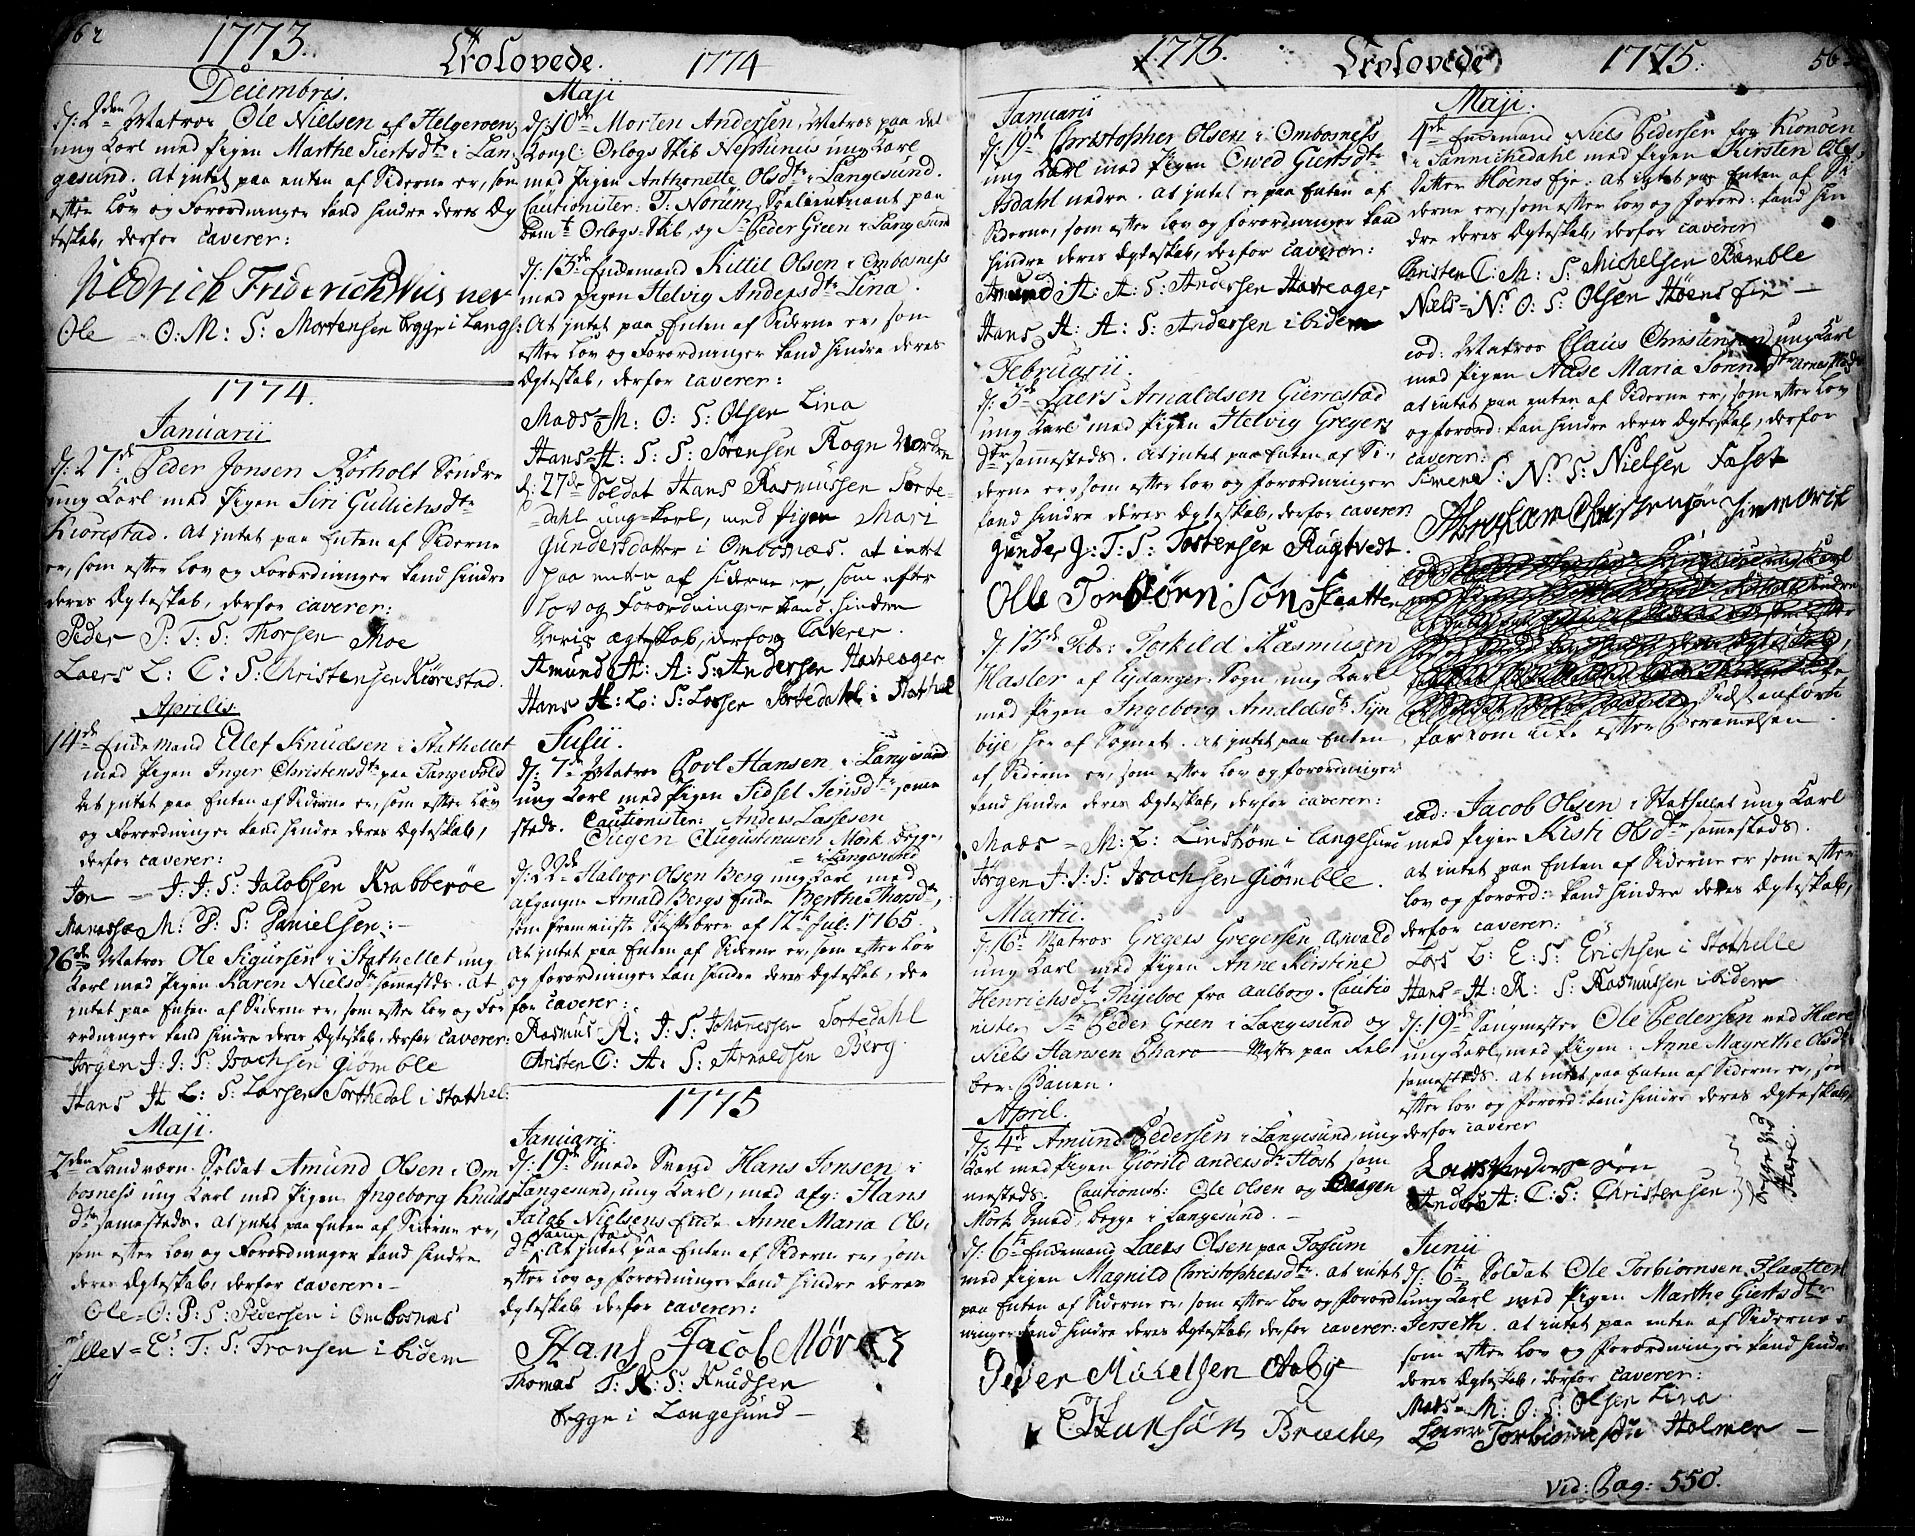 562
1773.
Trolovede.
1774
Decembris.
d: 2den Matros Ole Nielsen af Helgeroen,
ung Karl med Pigen Marthe Siertsdtr i Lan-
gesund. At intet paa enten af Siderne er, som
efter Lov og Forordninger kand hindre deres Æg
teskab, derfor caverer:
Uldrich Friderich
Ole - O: M: S: Mortensen begge i Langs:
1774.
Januarii
d: 27de Peder Jonsen Rørholt Søndre
ung Karl med Pigen Siri Gullichsdtr
Kiørestad. At intet paa Enten af Siderne
er, som efter Lov og Forordninger kand hindre
deres Ægteskab, derfor caverer:
Peder P: T: S: Thorsen Moe
Laers L: C: S: Christensen Kiørestad.
Aprilis
14de Enckemand Ellef Knudsen i Stathellet
med Pigen Inger Christensdtr paa Tangevold
At intet paa Enten af Siderne er, som efter Lov
og Forordninger kand hindre deres Ægteskab,
derfor caverer:
Jon - J: J: S: Jacobsen Krabberøe
Manasse M: D: S: Danielsen: -
26de Matros Ole Sigursen i Stathellet ung
Karl med Pigen Karen Nielsdtr sammestds. At
intet paa Enten af Siderne er, som efter Lov og For
ordninger kand hindre deres Ægteskab, derfor caverer:
Jørgen J: J: S: Isachsen Giømble
Hans H L: S: Larsen Sorthedal i Stathel:
Maji.
2den Landværn Soldat Amund Olsen i Om
bosness ung Karl med Pigen Ingeborg Knuds
dtr sammesteds. At intet paa Enten af Siderne er,
som efter Lov og Forordninger kand hindre
deres Ægteskab, derfor caverer: -
Ole = O: P: S: Pedersen i Ombosnæs
Ellev = E: T: S: Fransen ibidem
Maji
d: 10de Morten Andersen, Matros paa det
Kongl: Orlogs Skib Neptunus ung Karl
med Pigen Anthonette Olsdtr i Langesund.
Cautionister: T: Norum, Sælieutnant paa
bemte Orlogs-Skib, og Sr Peder Green i Langesund
d: 13de Enckemand Kittil Olsen i Ombosness
med Pigen Helvig Andersdtr Lina.
At intet paa Enten af Siderne er, som
efter Lov og Forordninger kand hindre deres
Ægteskab, derfor caverer:
Mads = M: O: S: Olsen Lina
Hans = H: S: S: Sørensen Rogn Nordre
d: 27de Soldat Hans Rasmussen Sorte-
dahl ung Karl, med Pigen Mari
Gundersdatter i Ombosnæs. at intet
paa enten af siderne er, som efter
Lov og Forordninger kand hindre
deris ægteskab, derfor Caverer.
Amund A: A: S: Andersen Havreager
Hans H: L: S: Larsen Sortedahl i Stathel
Julii.
d: 7de Matros Povl Hansen i Langesund
ung Karl med Pigen Sidsel Jensdtr, samme
steds. Cautionister: Anders Lassesen
Jurgen Augustinusen Mørk begge
i Langesund
d: 22de Halvor Olsen Berg ung Karl med
afgangne Arnald Bergs Encke Berthe Thorsdtr,
som fremviiste Skiftebrev af 12te Jul: 1765.
At intet paa Enten af Siderne er, som efter Lov
og Forordninger kan hindre deres Ægteskab, der
for caverer:
Rasmus = R: J: S: Johannessen Sortedahl
Christen C: A: S: Arnoldsen Berg.
1775
Januarii.
d: 19de Smede Svend Hans Jonsen i
Langesund, ung Karl, med afg: Hans
Jacob Nielsens Encke Anne Maria Ols-
dtr sammestds. At intet paa Enten af Siderne er, som
efter Lov og Forordninger kand hindre deres
Ægteskab derfor caverer:
Hans Jacob Mørch
Thomas T: K: S: Knudsen
begge i Langesund -
1775.
Trolovede
1775.
Januarii
d: 19de Christopher Olsen i Ombosness
ung Karl med Pigen Gved Giertsdtr
Asdahl nedre. At intet er paa Enten af
Siderne, som efter Lov og forordninger kan
hindre deres Ægteskab, derfor caverer:
Amund A: A: S: Andersen Havreager
Hans H: A: S: Andersen ibidem
Februarii.
d: 5te Laers Arnaldsen Gierrestad
ung Karl med Pigen Helvig Gregers
dtr sammesteds. At intet paa Enten af Si-
derne er, som efter Lov og forordninger
kand hindre deres Ægteskab, derfor caverer
Gunder G: T: S: Tostensen Rugtvedt.
Olle Torbiørn Søn Flaatten
d: 13de Feb: Torkild Rasmusen
Hasler af Eydanger Sogn ung Karl
med Pigen Ingeborg Arnaldsdtr Tyn
bye, her af Sognet. At intet paa Enten
af Siderne er, som efter Lov og forordninger
kand hindre deres Ægteskab, derfor caverer:
Mads = M: L: Linstrøm i Langesund
Jørgen J: J: S: Isachsen Giømble.
Martii.
d: 16de Matros Gregers Gregersen Arwald
ung Karl med Pigen Anne Kirstine
Henrichsdtr Thyeboe fra Aalborg. Cautio
nister Sr Peder Green i Langesund og
Niels Hansen Charo Mester paa Reb
ber-Banen.
April.
d: 4de Amund Pedersen i Langesund, ung
Karl med Pigen Giørild Andersdtr Høst sam
mesteds. Cautionist: Ole Olsen og Jørgen
Mørk Smed, begge i Langesund.
d: 6te Enckemand Laers Olsen paa Fossum
med Pigen Magnild Christophersdtr. at intet
paa Enten af Siderne er, som efter Lov og Forord
ninger kand hindre deres Ægteskab, derfor caverer:
Peder Michelsen Aaby
C Hansøn Bræche
56
Maji.
4de Enckemand Niels Pedersen fra Kionøen
i Sannichedahl med Pigen Kirsten Ols
datter Høens Eje: At intet paa Enten af Si
derne er, som efter Lov og Forord: kand hin
dre deres Ægteskab, derfor caverer
Christen C: M: S: Michelsen Bamble
Niels = N: O: S: Olsen Høens Eie -
eod: Matros Claus Christensen ung Karl
med Pigen Aase Maria Sørensdtr
at intet paa enten af Siderne er, som efter Lov
og forord: kan hindre deres Ægteskab, derfor
caverer:
Simen S: N: S: Nielsen Fasot
Abraham Christensøn
Sidstanførte
forkom icke efter Berammelsen.
eod: Jacob Olsen i Stathellet ung Karl
med Pigen Kisti Olsdtr sammesteds.
at intet paa Enten af Siderne er som efter
Lov og forord: kand hindre deres Ægteskab,
derfor caverer:
Lars L: E: S: Erichsen i Stathelle
Hans = H: R: S: Rasmussen ibidem
d: 19de Saugmester Ole Pedersen ved Herre
ung Karl, med Pigen Anne Magrethe Olsdtr
sammesteds. At intet paa Enten af Siderne er, som
efter Lov og Forord: kand hindre deres Ægteskab,
derfor caverer
Lars Pedersøn
Anders A: C: S: Christensen
begge ved
Herre.
Junii
d: 6te Soldat Ole Torbiørnsen Flaatten
ung Karl med Pigen Marthe Giertsdtr
Jerseth. at intet paa enten af Siderne er
som efter Lov og Forordninger kand hindre
deres Ægteskab, derfor caverer:
Mads = M: O: S: Olsen Lina
Laers Torbiørnsøn Holmen -
Vid: Pag: 550.